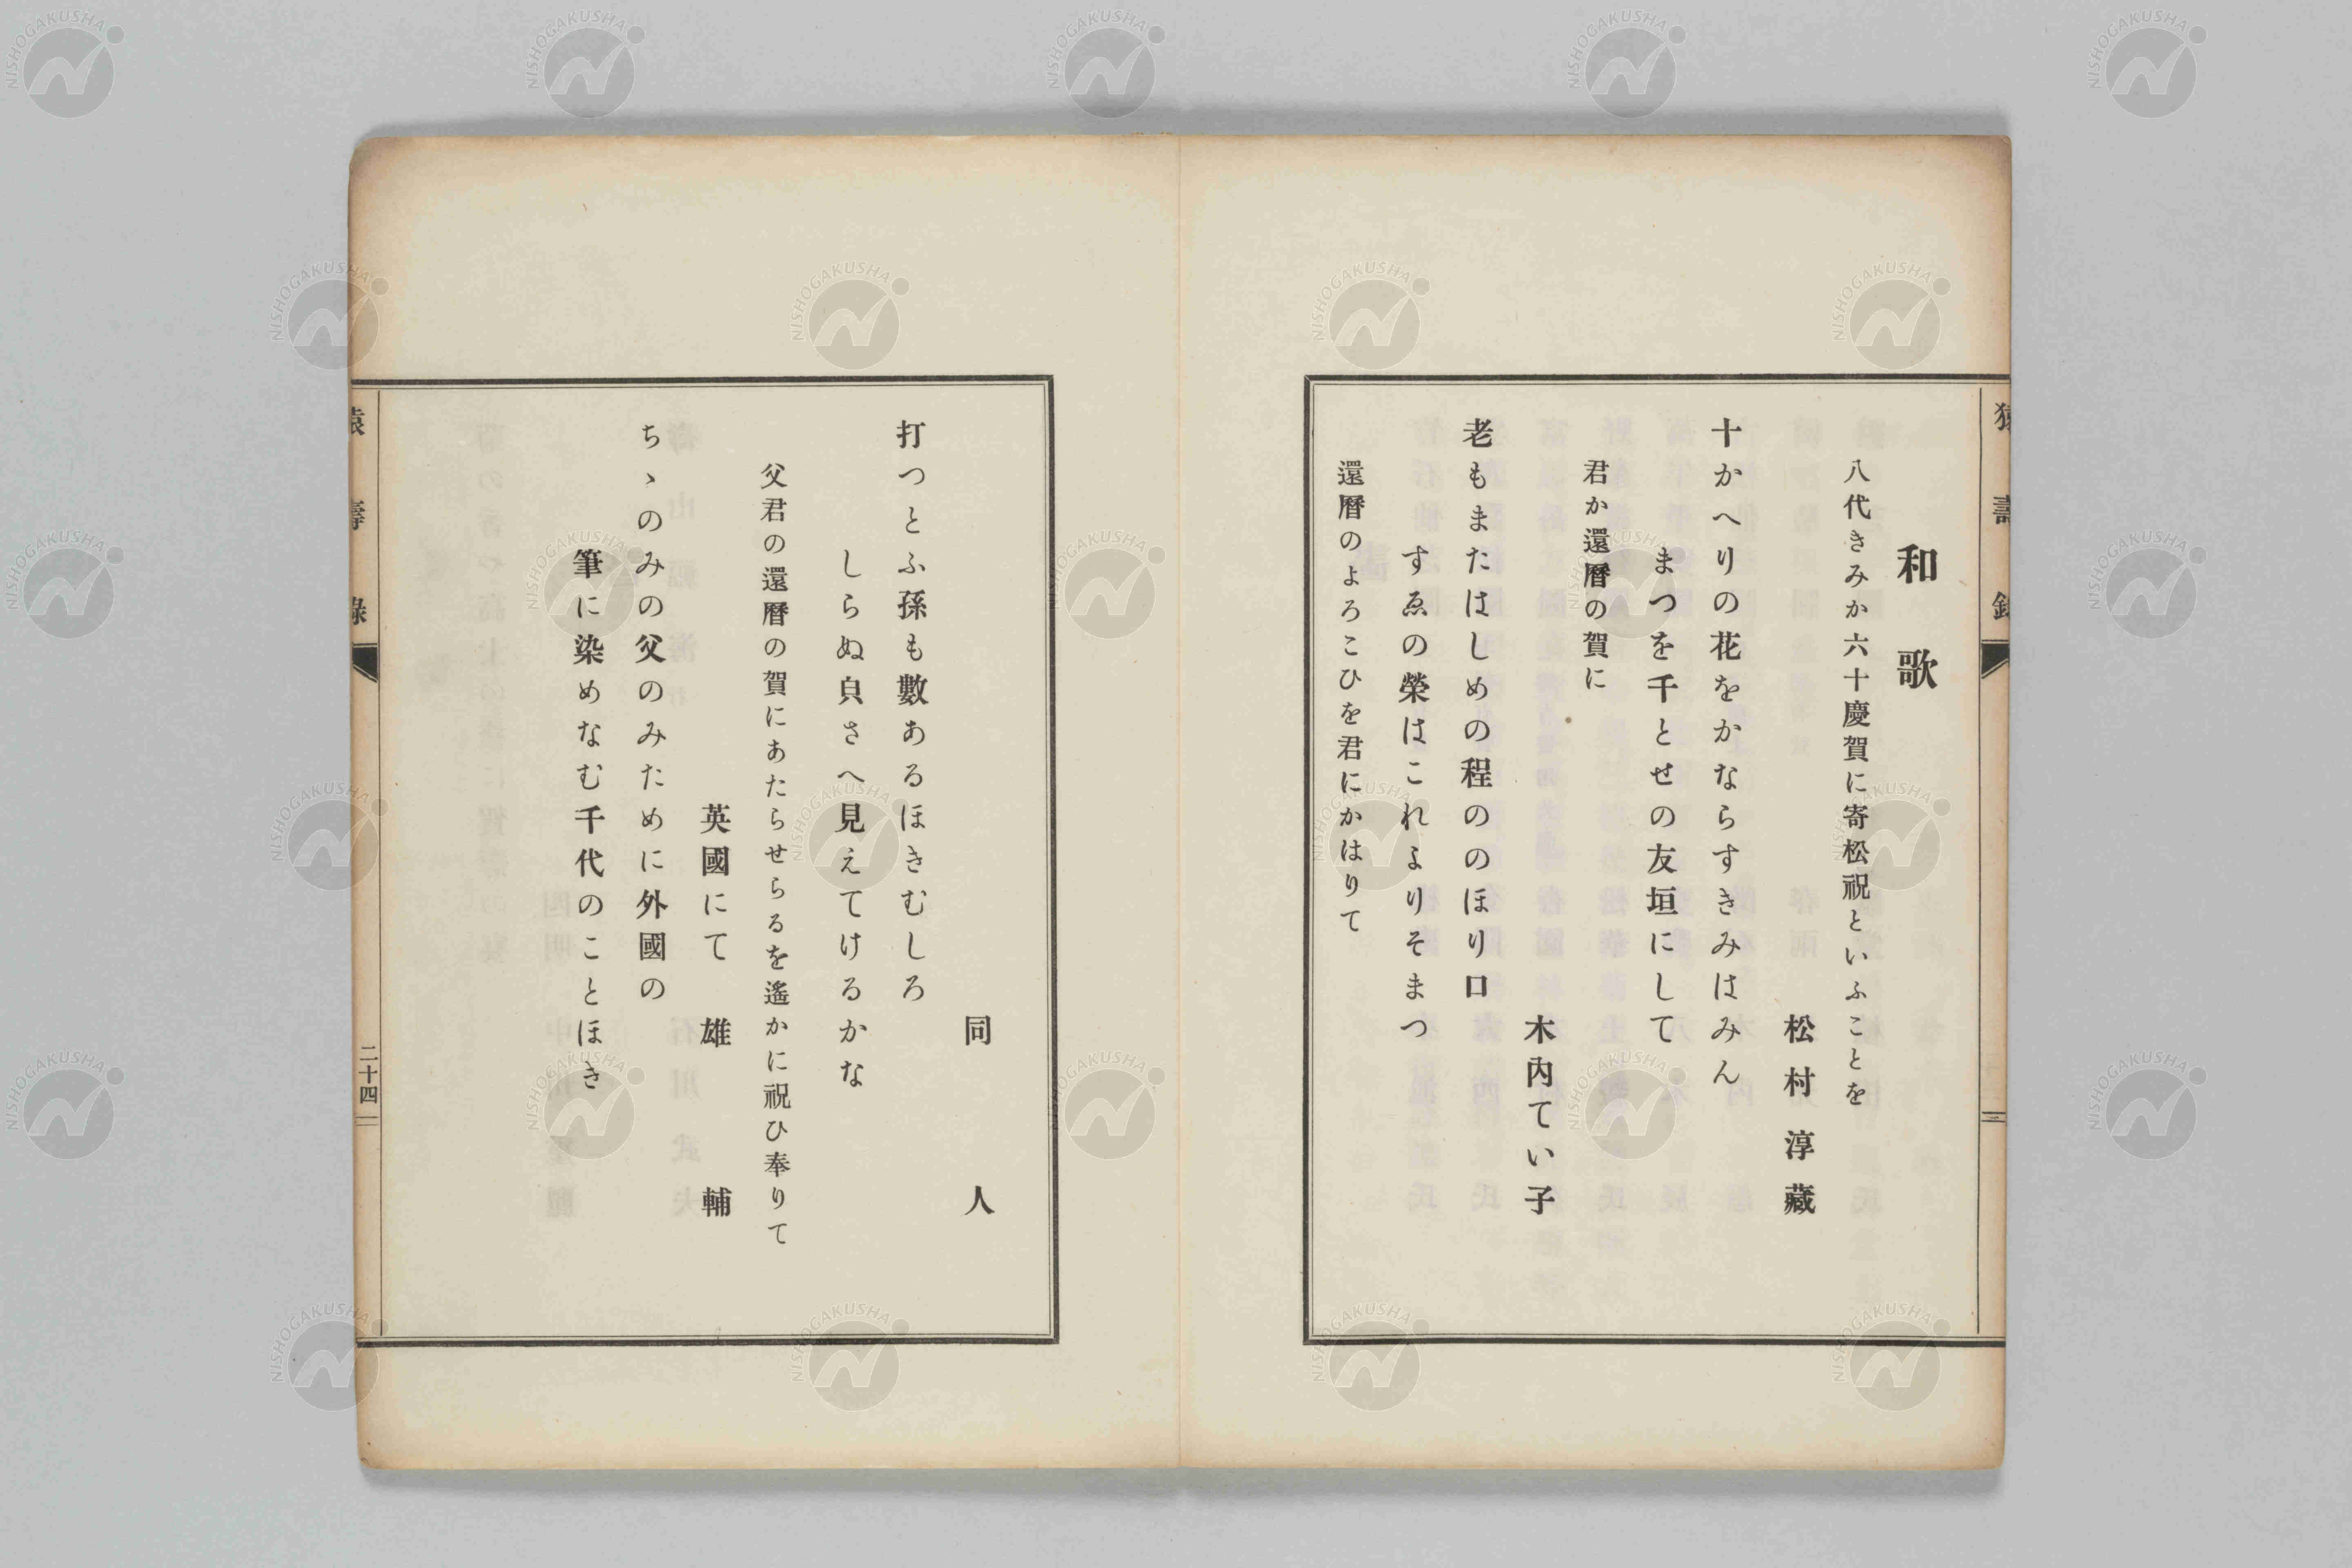 和歌
八代きみか六十慶賀に寄松祝といふことを
松村淳藏
十かへりの花をかならすきみはみん
まつを千とせの友垣にして
君か還曆の賀に
木內てい子
老もまたはしめの程ののほり口
すゑの榮はこれよりそまつ
還曆のよろこひを君にかはりて
同人
打つとふ孫も數あるほきむしろ
しらぬ㒵さへ見えてけるかな
父君の還曆の賀にあたらせらるを遙かに祝ひ奉りて
英國にて 雄輔
ちゝのみの父のみために外國の
筆に染めなむ千代のことほき
二十四
NISHOGAKUSHA